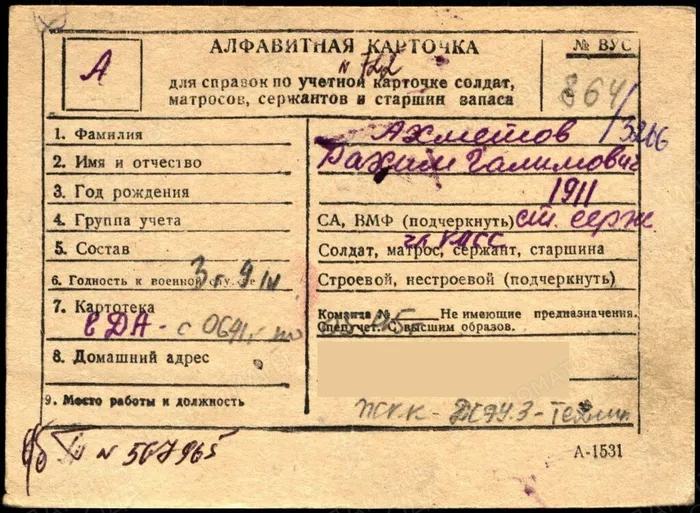 АЛФАВИТНАЯ КАРТОЧКА
№ ВУС
А
N 722
для справок по учетной карточке солдат,
матросов, сержантов и старшин запаса
864/3266
1. Фамилия
Ахметов
2. Имя и отчество
Рахим Галимович
3. Год рождения
1911
4. Группа учета
СА, ВМФ (подчеркнуть) ст. серж.
5. Состав
Солдат, матрос, сержант, старшина
6. Годность к военной службе
Строевой, нестроевой (подчеркнуть)
7. Картотека
Команда № Не имеющие предназначения.
Спецучет. С высшим образов.
с 0641г по
8. Домашний адрес
9. Место работы и должность
N 507965
А-1531